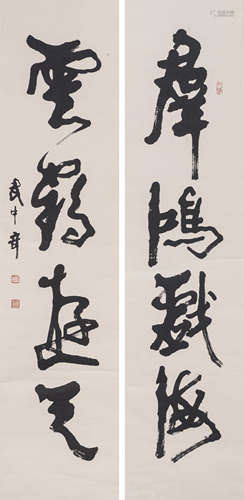 羣鴻戲海
雲鶴遊天
武中奇